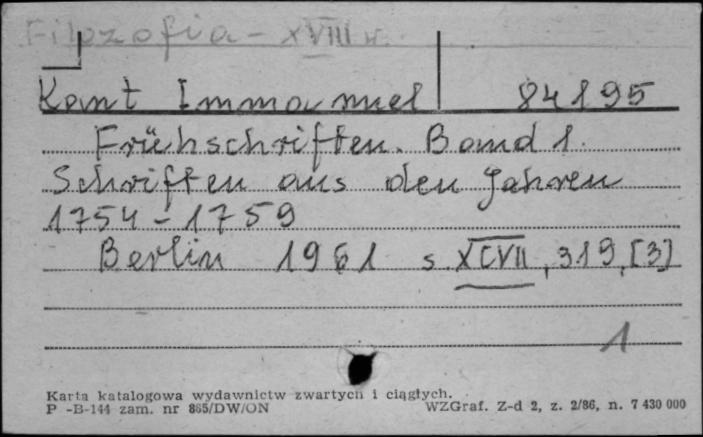 Filozofia - XVIII w.
Kant Immanuel 84195
Frühschriften. Band 1.
Schriften aus den Jahren
1754-1759
Berlin 1961 s. XCVII, 319, [3]
1
Karta katalogowa wydawnictw zwartych i ciągłych.
P -B-144 zam. nr 865/DW/ON WZGraf. Z-d 2, z. 2/86, n. 7 430 000